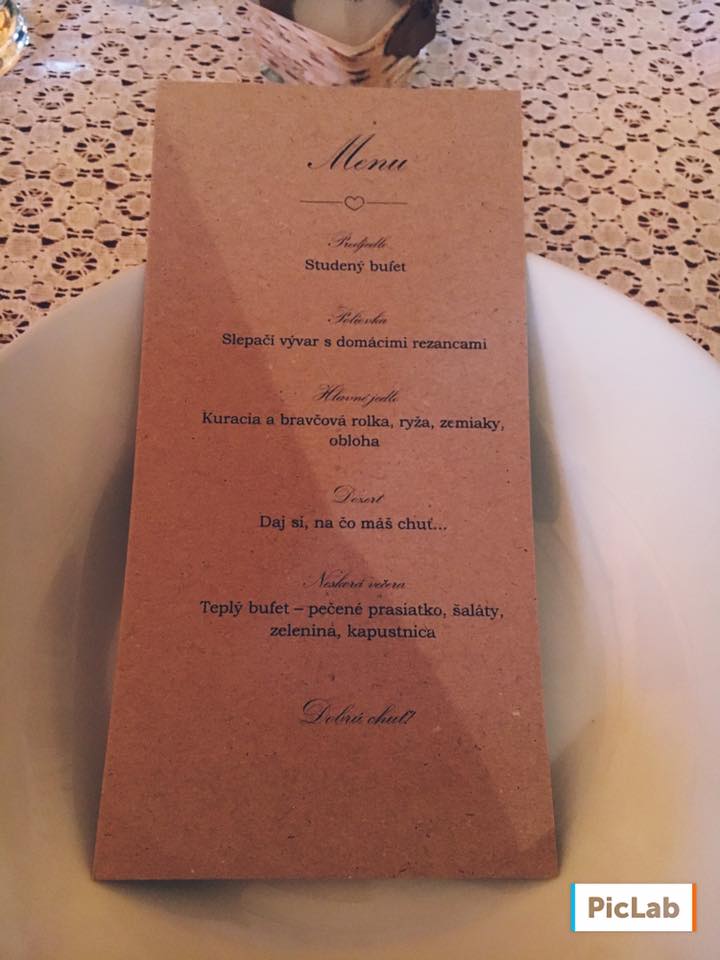 Menu
Predjedlo
Studený bufet
Polievka
Slepačí vývar s domácimi rezancami
Hlavné jedlo
Kuracia a bravčová rolka, ryža, zemiaky,
obloha
Dezert
Daj si, na čo máš chuť...
Neskorá večera
Teplý bufet – pečené prasiatko, šaláty,
zelenina, kapustnica
Dobrú chuť!
PicLab